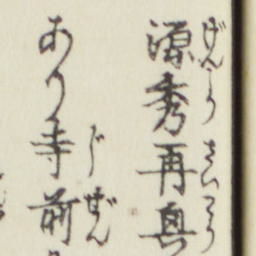 げんしう さいこう
源秀再興
じぜん
あり寺前